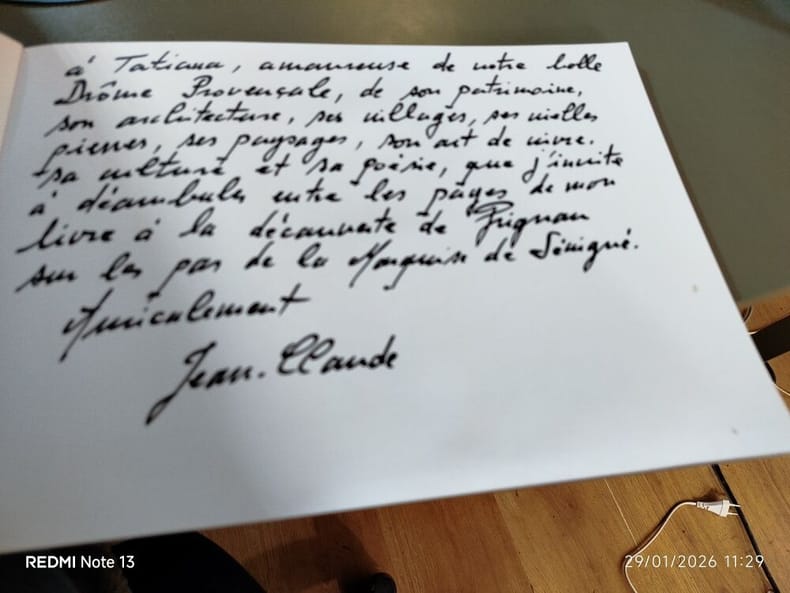 à Tatiana, amoureuse de notre belle
Drôme Provençale, de son patrimoine,
son architecture, ses villages, ses vieilles
pierres, ses paysages, son art de vivre.
sa culture et sa poésie, que j'invite
à déambuler entre les pages de mon
livre à la découverte de Grignan
sur les pas de la Marquise de Sévigné.
Amicalement
Jean-Claude
REDMI Note 13
29/01/2026 11:29